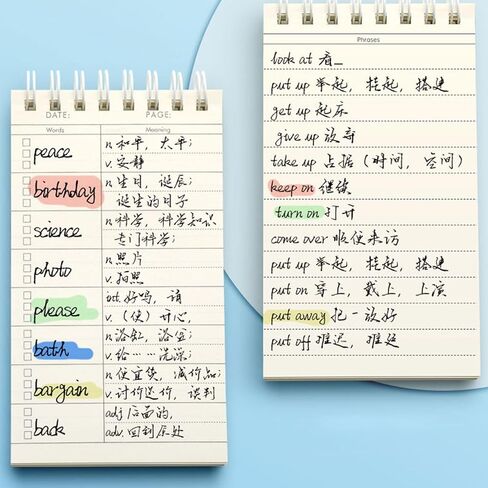 DATE: PAGE:
Words Meaning
peace n.和平，太平；
v.安静
birthday n.生日，诞辰；
诞生的日子
science n.科学，科学知识
专门科学；
photo n.照片
v.拍照
please int.好吗，请
v.（使）开心，
bath n.浴缸，浴室；
v.给……洗澡；
bargain n.便宜货，减价品；
v.讨价还价，谈判
back adj.后面的，
adv.回到原处
Phrases
look at 看_
put up 举起，提起，搭建
get up 起床
give up 放弃
take up 占据（时间，空间）
keep on 继续
turn on 打开
come over 顺便来访
put up 举起，提起，搭建
put on 穿上，戴上，上演
put away 把一放好
put off 推迟，推延